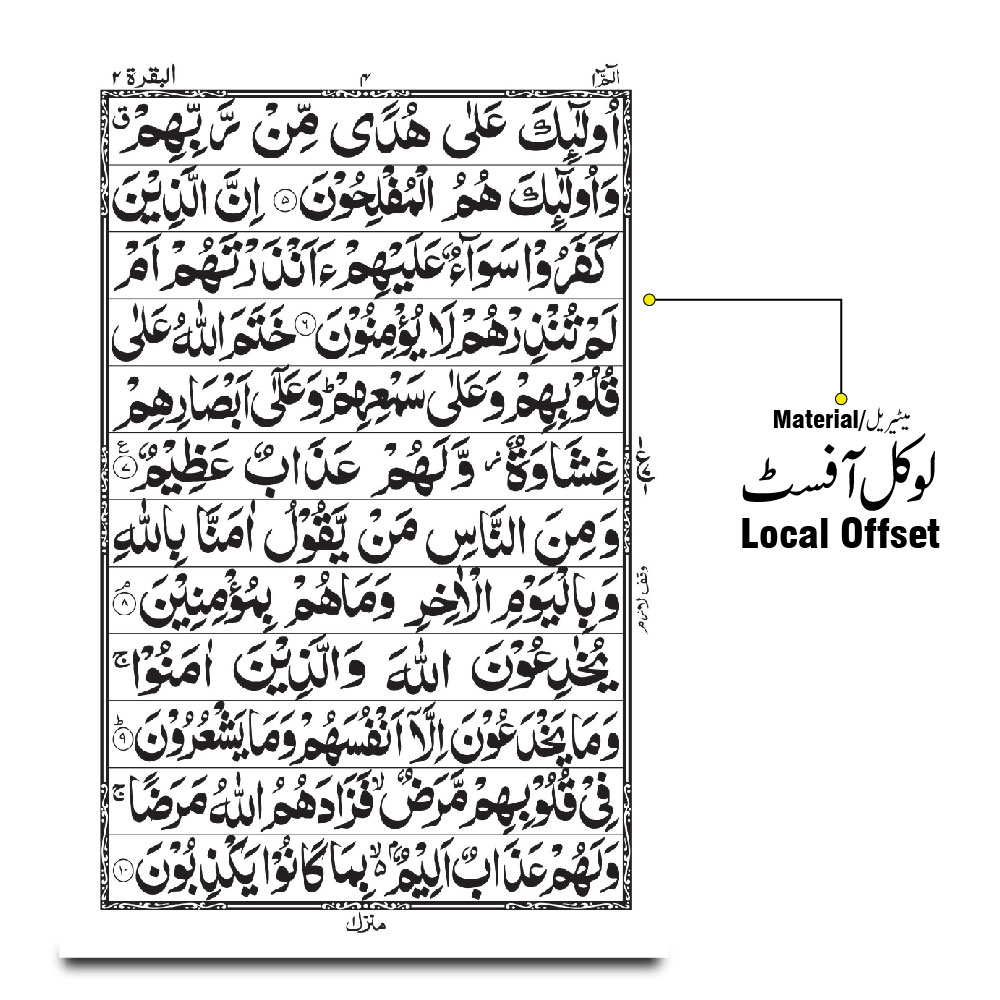 الٓمّٓ ١
٤
البقرة ٢
اُولٰٓئِكَ عَلٰى هُدًى مِّنْ رَّبِّهِمْ ق
وَاُولٰٓئِكَ هُمُ الْمُفْلِحُوْنَ ۝۵ اِنَّ الَّذِيْنَ
كَفَرُوْا سَوَآءٌ عَلَيْهِمْ ءَاَنْذَرْتَهُمْ اَمْ
لَمْ تُنْذِرْهُمْ لَا يُؤْمِنُوْنَ ۝۶ خَتَمَ اللّٰهُ عَلٰى
قُلُوْبِهِمْ وَعَلٰى سَمْعِهِمْ ؕ وَعَلٰٓى اَبْصَارِهِمْ
غِشَاوَةٌ ز وَّلَهُمْ عَذَابٌ عَظِيْمٌ ۝۷ ع
وَمِنَ النَّاسِ مَنْ يَّقُوْلُ اٰمَنَّا بِاللّٰهِ
وَبِالْيَوْمِ الْاٰخِرِ وَمَا هُمْ بِمُؤْمِنِيْنَ ۝۸ م
وقف لازم
يُخٰدِعُوْنَ اللّٰهَ وَالَّذِيْنَ اٰمَنُوْا ج
وَمَا يَخْدَعُوْنَ اِلَّاۤ اَنْفُسَهُمْ وَمَا يَشْعُرُوْنَ ۝۹ ؕ
فِىْ قُلُوْبِهِمْ مَّرَضٌ ۙ فَزَادَهُمُ اللّٰهُ مَرَضًا ج
وَلَهُمْ عَذَابٌ اَلِيْمٌ ۙ۬ۢ بِمَا كَانُوْا يَكْذِبُوْنَ ۝۱۰
منزل ١
Material/میٹیریل
لوکل آفسٹ
Local Offset